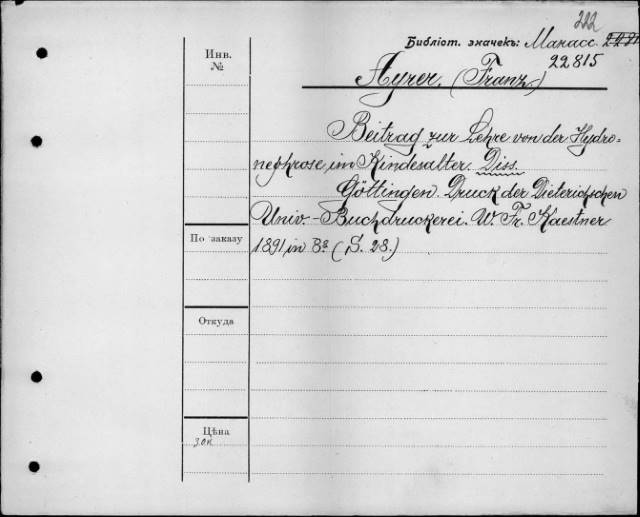 222
Библіот. значекъ: Манасс.
22815
Инв.
№
Ayrer. (Franz)
Beitrag zur Lehre von der Hydro-
nephrose im Kindesalter. Diss.
Göttingen. Druck der Dieterichschen
Univ.-Buchdruckerei. W. Fr. Kaestner
1891, in 8º (S. 28.)
По заказу
Откуда
Цѣна
30к